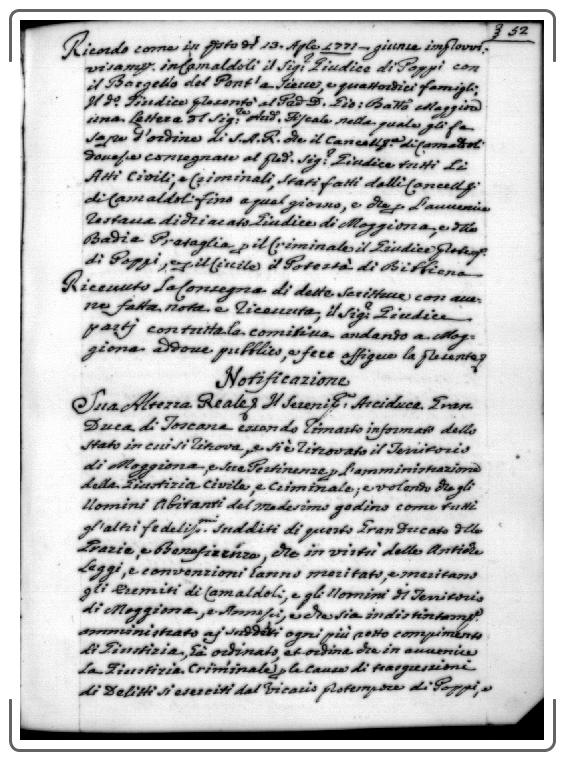 52
Ricordo come in questo dì 13. Aple 1771 - giunse improvi-
visamte. in Camaldoli il Sigr. Giudice di Poppi con
il Bargello del Pont'a Sieve, e quattordici famigli;
Il do. Giudice presentò al Pad. D. Gio: Batta Maggiore
una Lettera del Sigre. Aud. Fiscale nella quale gli fa
sape d'ordine di S.A.R. che il Cancellre. di Camaldoli
dovesse consegnare al pred. Sigr. Giudice tutti Li
Atti Civili, e Criminali, stati fatti dalli Cancellri
di Camaldoli fino a quel giorno, e che p L'avvenire
restava dichiarato Giudice di Moggiona, e della
Badia Prataglia p il Criminale il Giudice
di Poppi, e p il Civile il Potestà di Bibbiena
Ricevuto La Consegna di dette scritture con aver-
ne fatta nota e ricevuta, il Sigr. Giudice
partj con tutta la comitiva andando a Mog-
giona addove pubblicò, e fece affigere la presente
Notificazione
Sua Altezza Reale Il Serenismo. Arciduca Gran
Duca di Toscana essendo rimasto informato dello
stato in cui si ritrova, e si è ritrovato il Territorio
di Moggiona, e sue Pertinenze p L'amministrazione
della Giustizia Civile, e Criminale, e volendo che gli
Uomini Abitanti del medesimo godino come tutti
gl'altri fedeliss. sudditi di questo Gran Ducato delle
Grazie, e Beneficenze, che in virtù delle Antiche
Leggi, e convenzioni anno meritato, e meritano
gli Eremiti di Camaldoli, e gli Uomini di Territorio
di Moggiona, e Annessi, e che sia indistintamte.
amministrato aj sudditi ogni più retto compimento
di Giustizia, Hà ordinato, et ordina che in avvenire
La Giustizia Criminale p le Cause di trasgressioni
di Delitti si eserciti dal Vicario protempore di Poppi, e